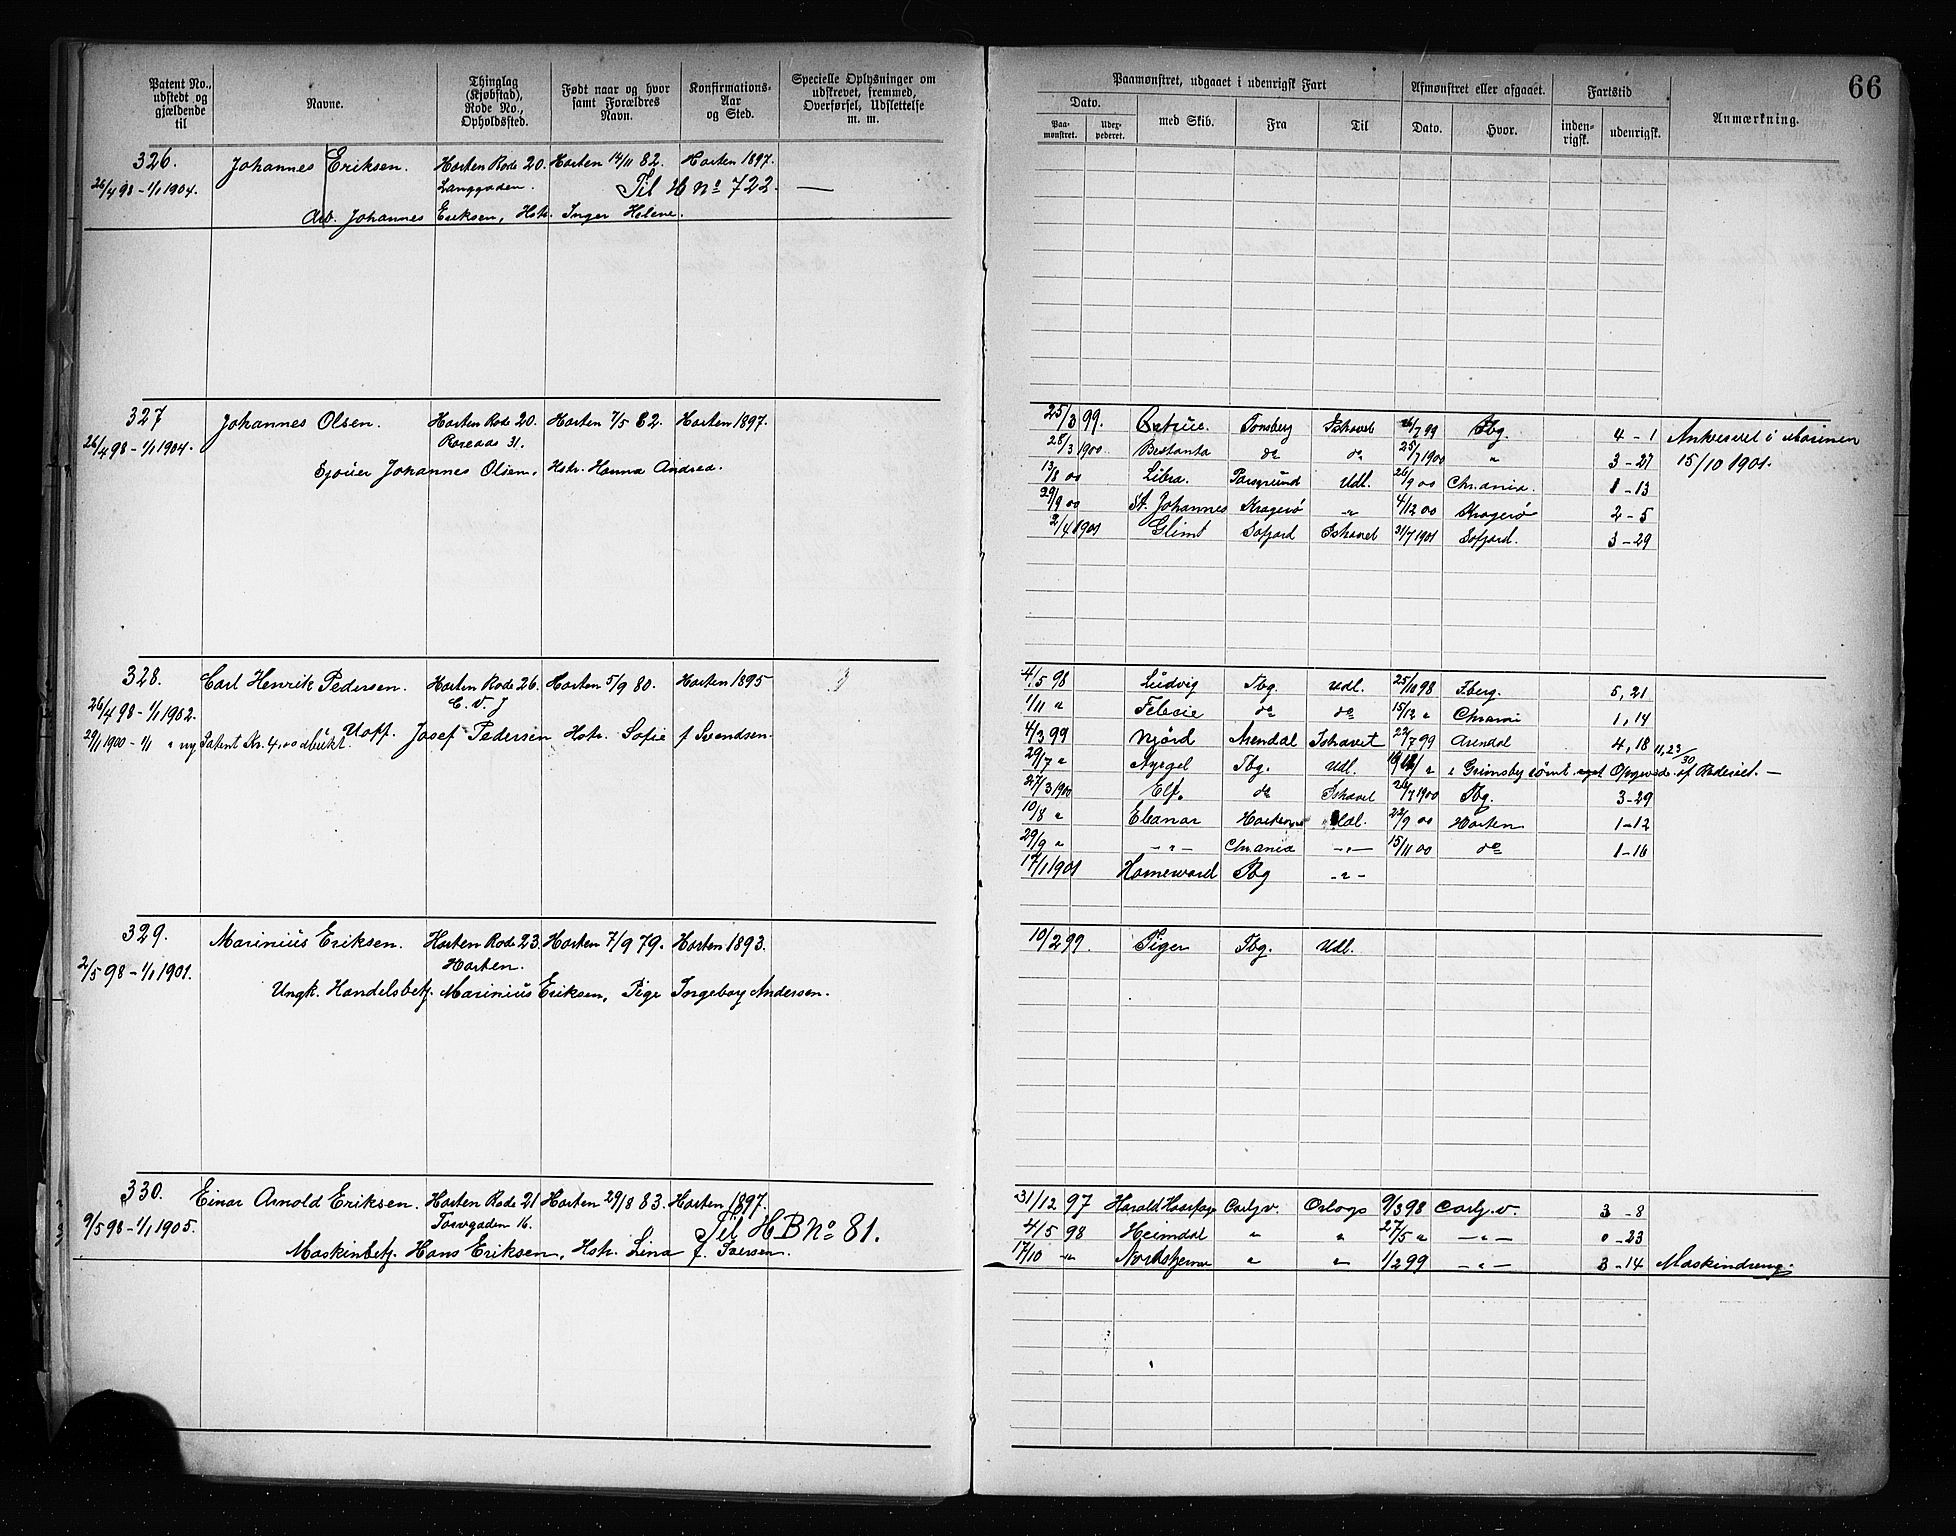 66
Patent No., udstedt og gjældende til
Navne.
Thinglag (Kjøbstad), Rode No., Opholdssted.
Født naar og hvor samt Forældres Navn.
Konfirmations-Aar og Sted.
Specielle Oplysninger om udskrevet, fremmed, Overførsel, Udslettelse m. m.
Paamønstret, udgaaet i udenrigsk Fart
Dato.
Paa-mønstret.
Udex-pederet.
med Skib.
Fra
Til
Afmønstret eller afgaaet.
Dato.
Hvor.
Fartstid
inden-rigsk.
udenrigsk.
Anmærkning.
326. Johannes Eriksen. Horten Rode 20. Horten 14/11 82. Horten 1897.
26/4 98 - 1/1 1904. Langgaden. Til H No 722. —
Arb. Johannes Eriksen, Hstr. Inger Helene.
327 Johannes Olsen. Horten Rode 20. Horten 7/5 82. Horten 1897.
26/4 98 - 1/1 1904. 31.
Johannes Olsen, Hstr. Hanna Andrea.
25/3 99. Tønsberg Ishavet 26/7 99 Tbg. 4 - 1 i Marinen
28/3 1900 do do 25/7 1900 " 3 - 27 15/10 1901.
13/8 00 Libra. Porsgrund Udl. 26/9 00 Chr.ania. 1 - 13
29/9 00 St. Johannes Kragerø -"- 4/12 00 Kragerø 2 - 5
2/4 1901 Glimt Ishavet 31/7 1901 3 - 29
328. Carl Henrik Pedersen. Horten Rode 26. Horten 5/9 80. Horten 1895
26/4 98 - 1/1 1902.
Josef Pedersen Hstr. Sofie f Svendsen.
4/5 98 Ludvig Tbg. Udl. 25/10 98 5, 21
1/11 " do do 15/12 " 1, 14
4/3 99 Njørd Arendal Ishavet 22/7 99 Arendal 4, 18
29/7 " Tbg. Udl. Grimsby
27/3 1900 Elf. do Ishavet 26/7 1900 Tbg. 3-29
10/8 " Eleanor Udl. 22/9 00 Horten 1-12
29/9 " -"- Chr.ania -"- 15/11 00 do 1-16
17/1 1901 Homeward Tbg -"-
329. Marinius Eriksen. Horten Rode 23. Horten 7/9 79. Horten 1893.
2/5 98 - 1/1 1901. Horten.
Ungk. Handelsbetj. Marinius Eriksen, Pige Ingeborg Andersen.
10/2 99. Tiger Tbg. Udl.
330. Einar Arnold Eriksen. Horten Rode 21 Horten 29/8 83. Horten 1897.
9/5 98 - 1/1 1905. Torvgaden 16. Til H B No 81.
Maskinbetj. Hans Eriksen, Hstr. Lina f. Iversen.
31/12 97 Carlj.v. Orlogs 9/3 98 Carlj.v. 3 - 8
4/5 98 Heimdal " " 27/5 " -"- 0 - 23
17/10 -"- Nordstjernen " " 1/2 99 -"- 3 - 14 Maskindreng.